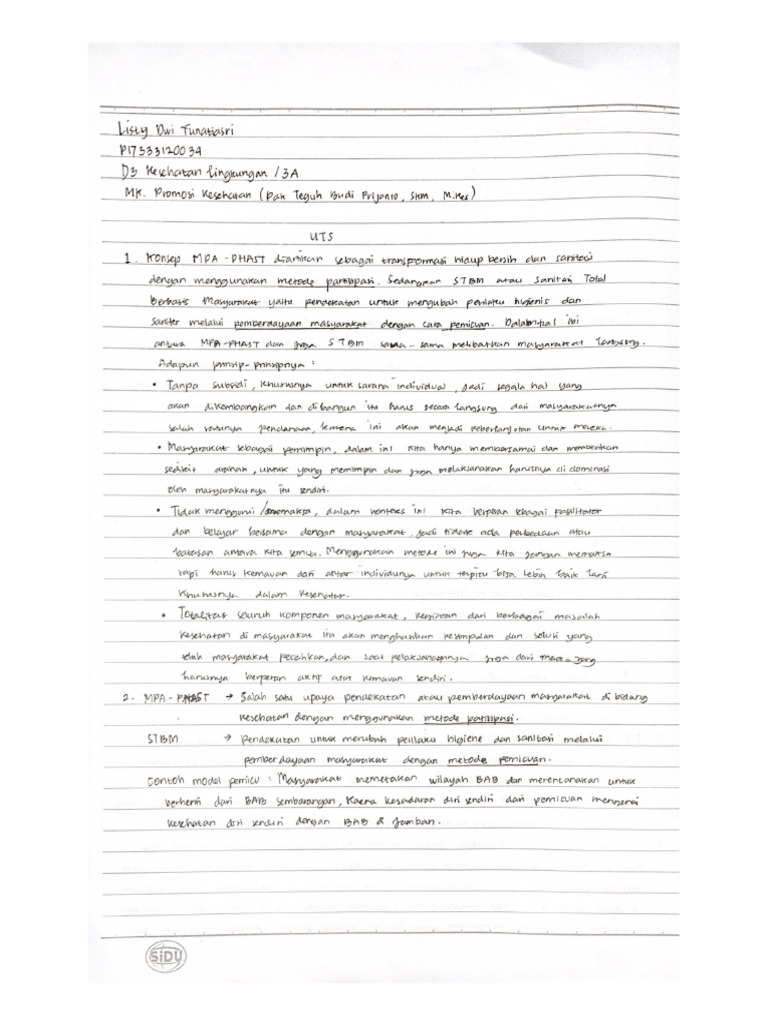 Listy Dwi Tunatiasri
P17333120034
D3 Kesehatan Lingkungan / 3A
MK. Promosi Kesehatan (Pak Teguh Budi Prijonto, SKM, M.Kes)
UTS
1. Konsep MPA-PHAST diartikan sebagai transformasi hidup bersih dan sanitasi
dengan menggunakan metode partisipasi. Sedangkan STBM atau Sanitasi Total
Berbasis Masyarakat yaitu pendekatan untuk mengubah perilaku higienis dan
saniter melalui pemberdayaan masyarakat dengan cara pemicuan. Dalam hal ini
antara MPA-PHAST dan juga STBM sama-sama melibatkan masyarakat langsung.
Adapun prinsip-prinsipnya :
• Tanpa subsidi, khususnya untuk sarana individual, jadi segala hal yang
akan dikembangkan dan dibangun itu harus secara langsung dari masyarakatnya
salah satunya pendanaan, karena ini akan menjadi keberlanjutan untuk mereka.
• Masyarakat sebagai pemimpin, dalam ini kita hanya membersamai dan memberikan
sedikit arahan, untuk yang memimpin dan juga melaksanakan harusnya di dominasi
oleh masyarakatnya itu sendiri.
• Tidak menggurui / memaksa, dalam konteks ini kita berperan sebagai fasilitator
dan belajar bersama dengan masyarakat, jadi tidak ada perbedaan atau
batasan antara kita semua. Menggunakan metode ini juga kita jangan memaksa
tapi harus kemauan dari antar individunya untuk bisa lebih baik lagi
khususnya dalam kesehatan.
• Totalitas seluruh komponen masyarakat, kegiatan dari berbagai masalah
kesehatan di masyarakat itu akan menghasilkan kesimpulan dan solusi yang
telah masyarakat pecahkan, dan saat pelaksanaannya juga dari mereka yang
harusnya berperan aktif atas kemauan sendiri.
2. MPA-PHAST → Salah satu upaya pendekatan atau pemberdayaan masyarakat di bidang
kesehatan dengan menggunakan metode partisipasi.
STBM → Pendekatan untuk merubah perilaku higiene dan sanitasi melalui
pemberdayaan masyarakat dengan metode pemicuan.
Contoh model pemicu : Masyarakat memetakan wilayah BAB dan merencanakan untuk
berhenti dari BAB sembarangan, karena kesadaran diri sendiri dari pemicuan mengenai
kesehatan diri sendiri dengan BAB di jamban.
SiDU